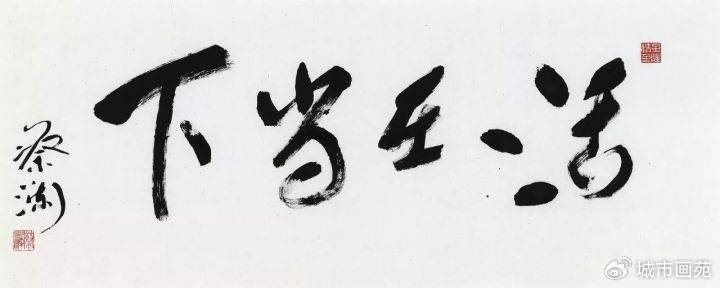 活在当下
蔡澜
城市画苑